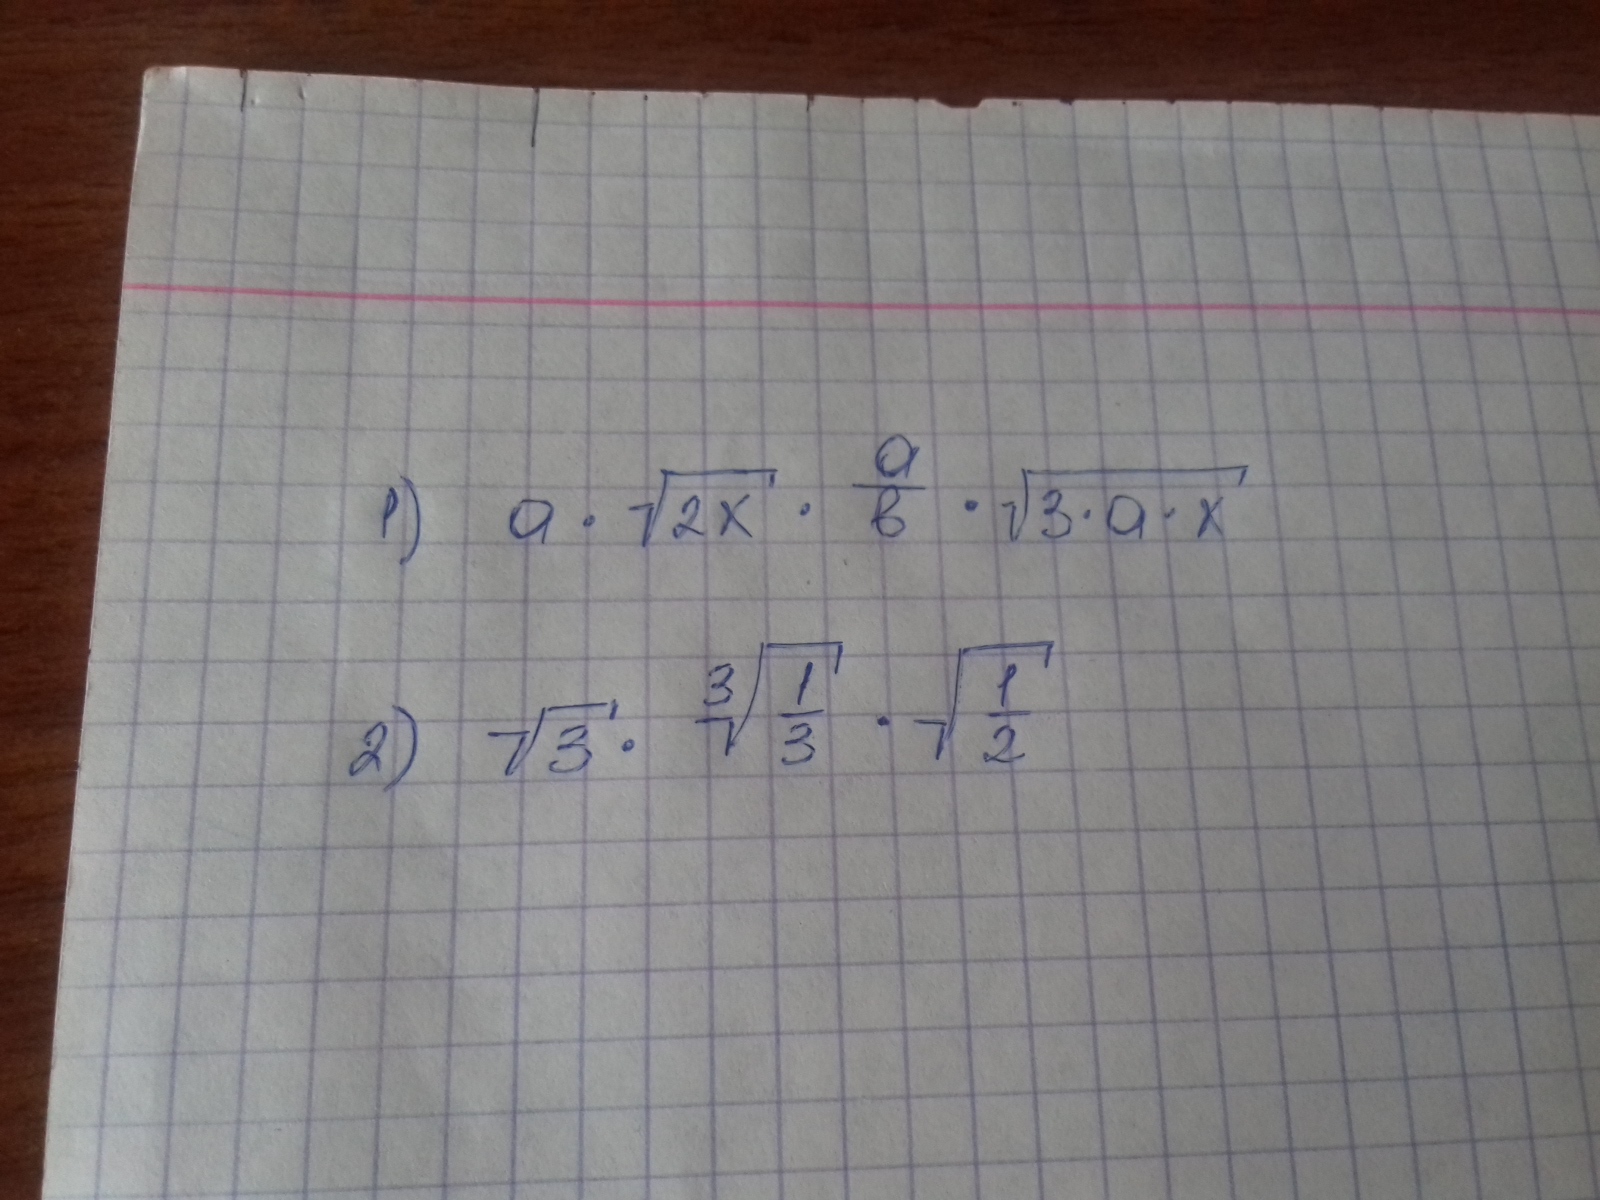 1) a · √2x · a/b · √3·a·x
2) √3 · ³√1/3 · √1/2